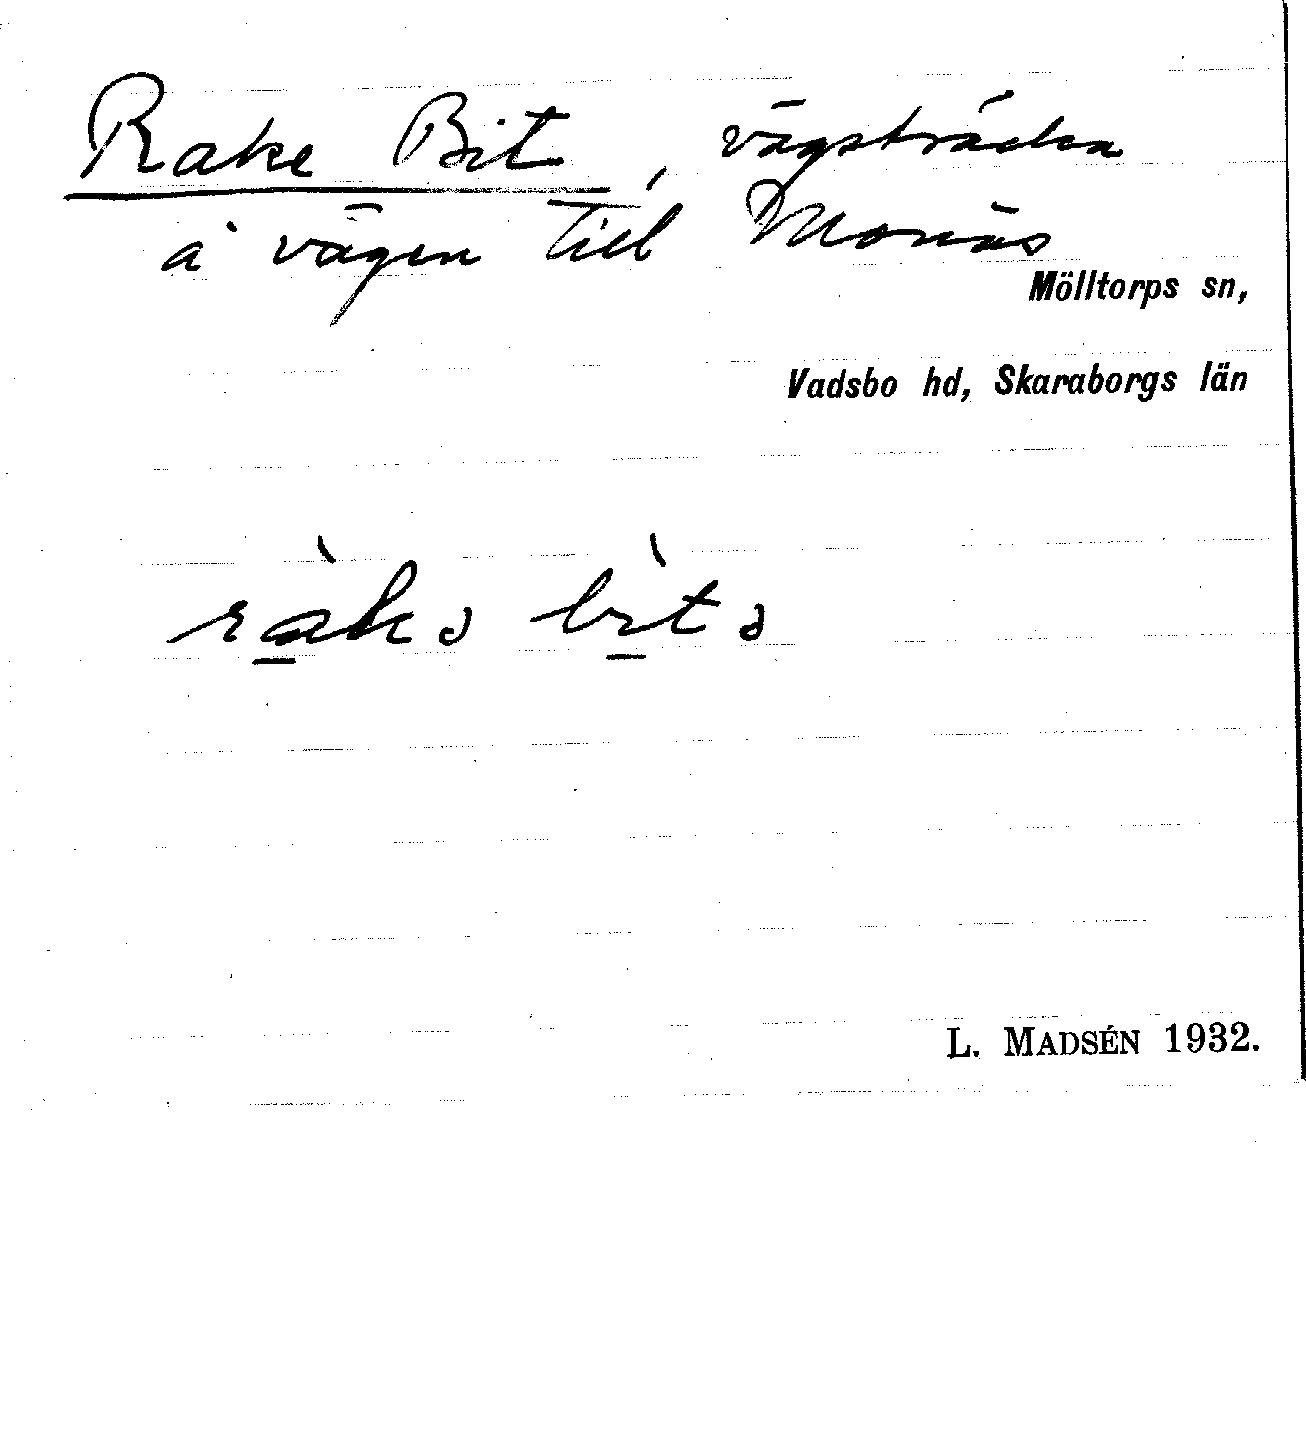 Rake Bit, vägsträcka
å vägen till Monäs
Mölltorps sn,
Vadsbo hd, Skaraborgs län
L. MADSÉN 1932.